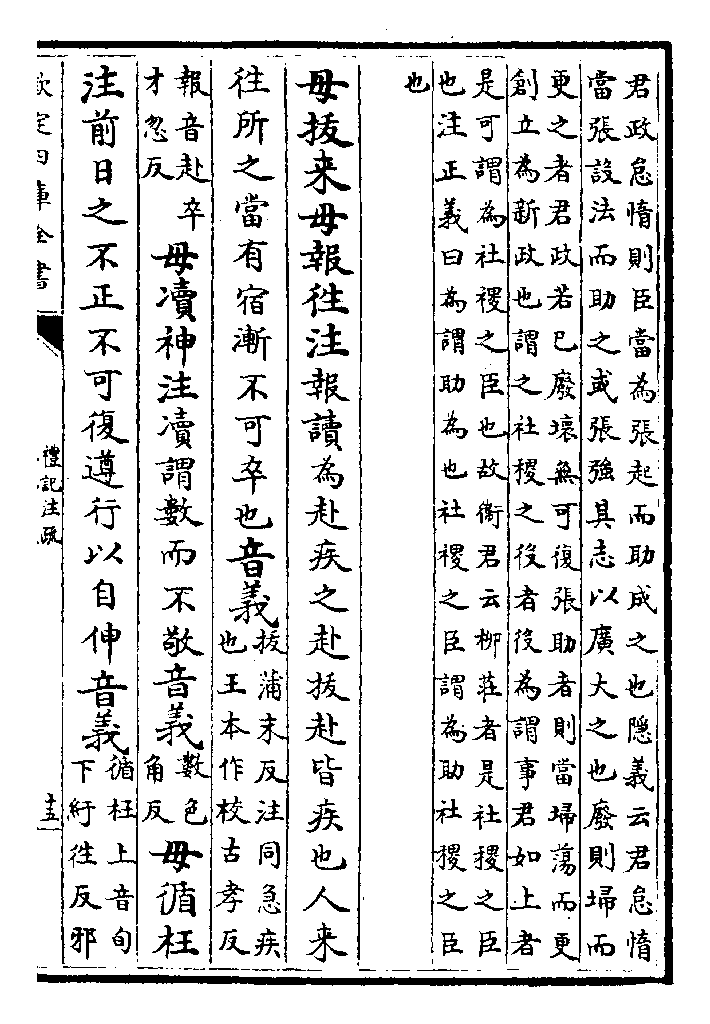 君政怠惰則臣當為張起而助成之也隠義云君怠惰
當張設法而助之或張強其志以廣大之也廢則埽而
更之者君政若已廢壞無可復張助者則當埽蕩而更
創立為新政也謂之社稷之役者役為謂事君如上者
是可謂為社稷之臣也故衞君云柳莊者是社稷之臣
也注正義曰為謂助為也社稷之臣謂為助社稷之臣
也
毋拔来毋報徃注報讀為赴疾之赴拔赴皆疾也人来
徃所之當有宿漸不可卒也音義
拔蒲末反注同急疾
也王本作校古孝反
報音赴卒
才忽反
毋瀆神注瀆謂數而不敬音義
數色
角反
毋循枉
注前日之不正不可復遵行以自伸音義
循枉上音旬
下紆徃反邪
欽定四庫全書
禮記注疏
十五